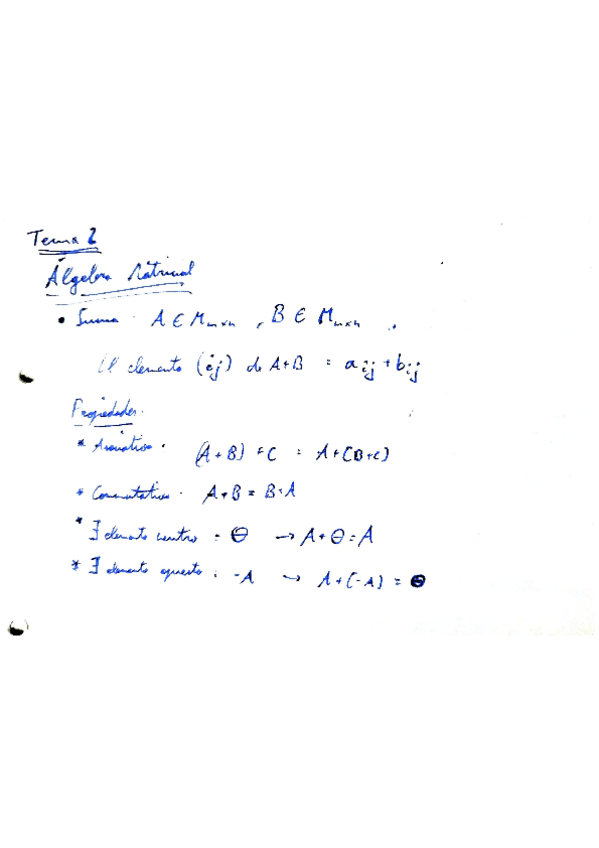 Tema 2
Álgebra Matricial
• Suma. A ∈ Mmxn, B ∈ Mmxn.
El elemento (ij) de A+B = aij + bij
Propiedades.
* Asociativa. (A+B)+C = A+(B+C)
* Conmutativa. A+B = B+A
* ∃ elemento neutro = Θ → A+Θ=A
* ∃ elemento opuesto: -A → A+(-A) = Θ